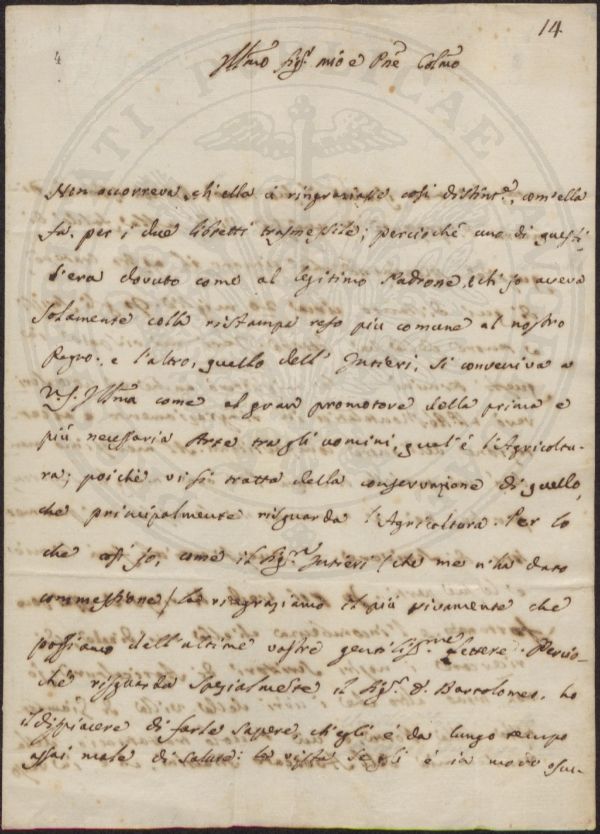 14
4
Ill.mo Sig.r mio e Pne Colmo
Non occorreva, ch'ella ci ringraziasse così distint.e, com'ella
fa, per i due libretti trasmessile; perciochè uno di questi
l'era dovuto come al legitimo Padrone, ch'io aveva
solamente colla ristampa reso più comune al nostro
Regno: e l'altro, quello dell' Intieri, si conveniva a
V.S. Illma come al gran promotore della prima e
più necessaria Arte tra gli uomini, qual'è l'Agricoltu-
ra; poichè vi si tratta della conservazione di quello,
che principalmente risguarda l'Agricoltora. Per lo
che così io, come il Sig.r Intieri (che me n'ha dato
commessione) la ringraziamo il più vivamente che
possiamo dell'ultime vostre gentiliss.me Lettere. Percio-
chè risguarda spezialmente il Sig.r D. Bartolomeo, ho
il dispiacere di farle sapere, ch'egli è da lungo tempo
assai male di salute: la vista se gli è in modo oscu-